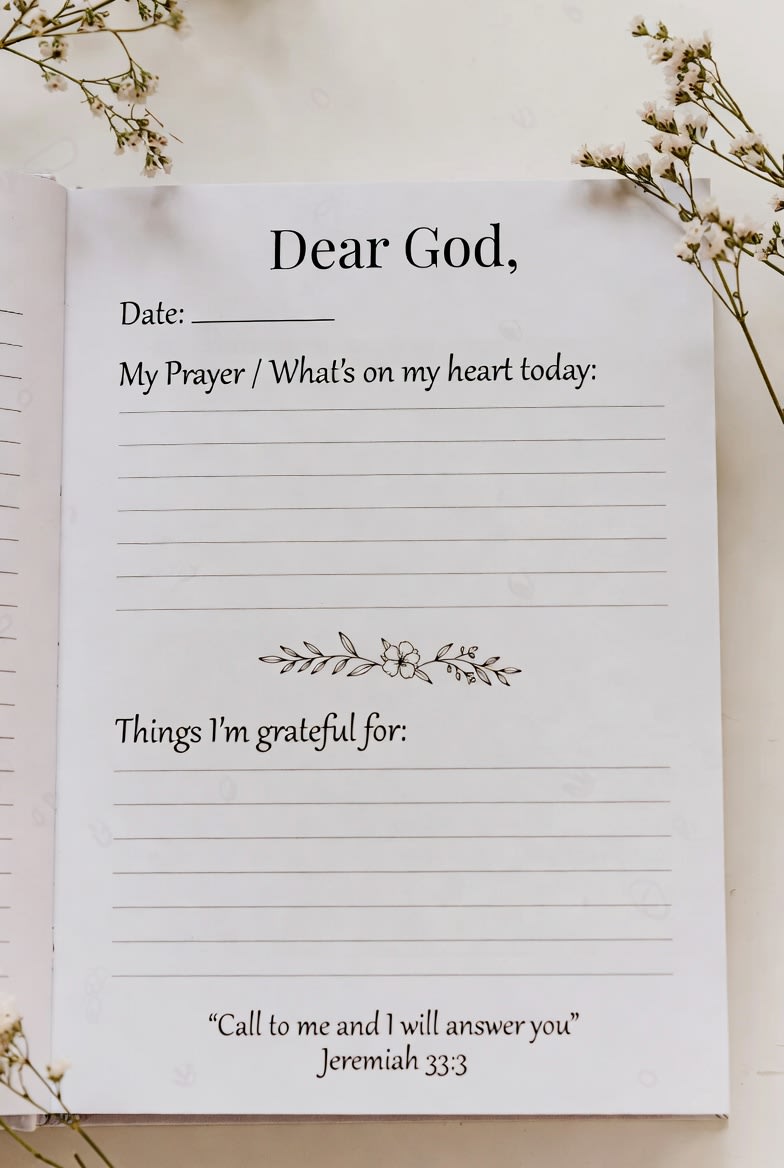 Dear God,
Date: __________
My Prayer / What's on my heart today:
Things I'm grateful for:
“Call to me and I will answer you”
Jeremiah 33:3